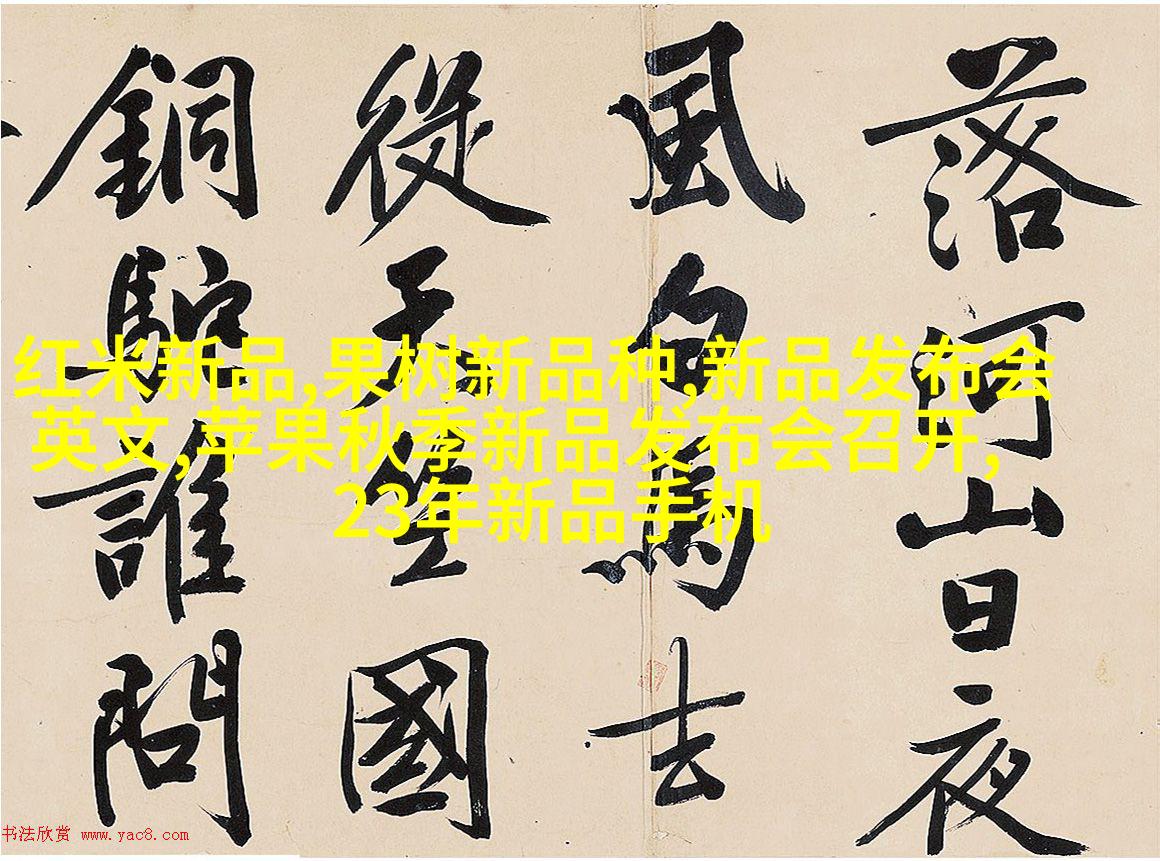 落河山日夜
風白馬去
從天竺國
銅駝誰問
红米新品,果树新品种,新品发布会
英文,苹果秋季新品发布会召开,
23年新品手机
书法欣赏 www.yac8.com